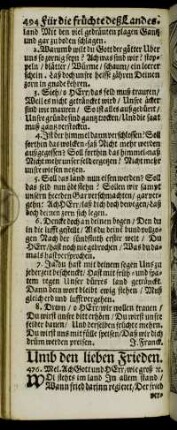 494 Für die früchte deß Landes.
land Mit den viel gedräuten plagen Gantz
und gar zu boden schlagen.
2. Warum wilt du Gott der götter Uber
uns so zornig seyn? Ach was sind wir! stop-
peln / blätter / Würme / schaum / ein leerer
schein. Laß doch unser heisse zähren Deinen
zorn in gnade kehren.
3. Soltz / o HErr / das feld muß trauren /
Weil es nicht getränckt wird / Unser äcker
sind wie mauren / So ist alles ausgedürrt /
Unsre gründe sind gantz trocken / Und die saat
muß gantz verstocken.
4. Ist der himmel dann verschlossen? Soll
forthin das wolcken-faß Nicht mehr werden
ausgegossen? Soll forthin das himmels-naß
Nicht mehr unser feld ergetzen? Nicht mehr
unsre wiesen netzen.
5. Soll das land nun eisen werden? Soll
das feld nun öde stehn? Sollen wir samt
unsern heerden Gar verschmachten / gar ver-
gehn? Ach HErr / laß dich doch bewegen / Laß
doch deinen zorn sich legen.
6. Denck doch an deinen bogen / Den du
in die lufft gestellt / Als du deine hand vollzo-
gen Nach der sündfluth erste welt / Du
HErr / hast noch nie gebrochen / Was du da-
mals hast versprochen.
7. Ja du hast mit deinem segen Uns zu
jeder zeit beschenckt / Hast mit früh- und spa-
tem regen Unser dürres land getränckt
Dann dein wort bleibt ewig stehen / Muß
gleich erd und lufft vergehen.
8. Drum / o HErr / wir wollen trauen /
Du wirst unser bitt erhören / Du wirst unsre
felder bauen / Und derselben früchte mehren.
Du wirst uns mit fülle speisen / Daß wir dich
drüm werden preisen. J. Franck.
Umb den lieben Frieden.
476. Mel. Ach Gott und HErr / wie groß rc.
WO stehts im land In allem stand /
Wann fried darinn regieret / Der freud